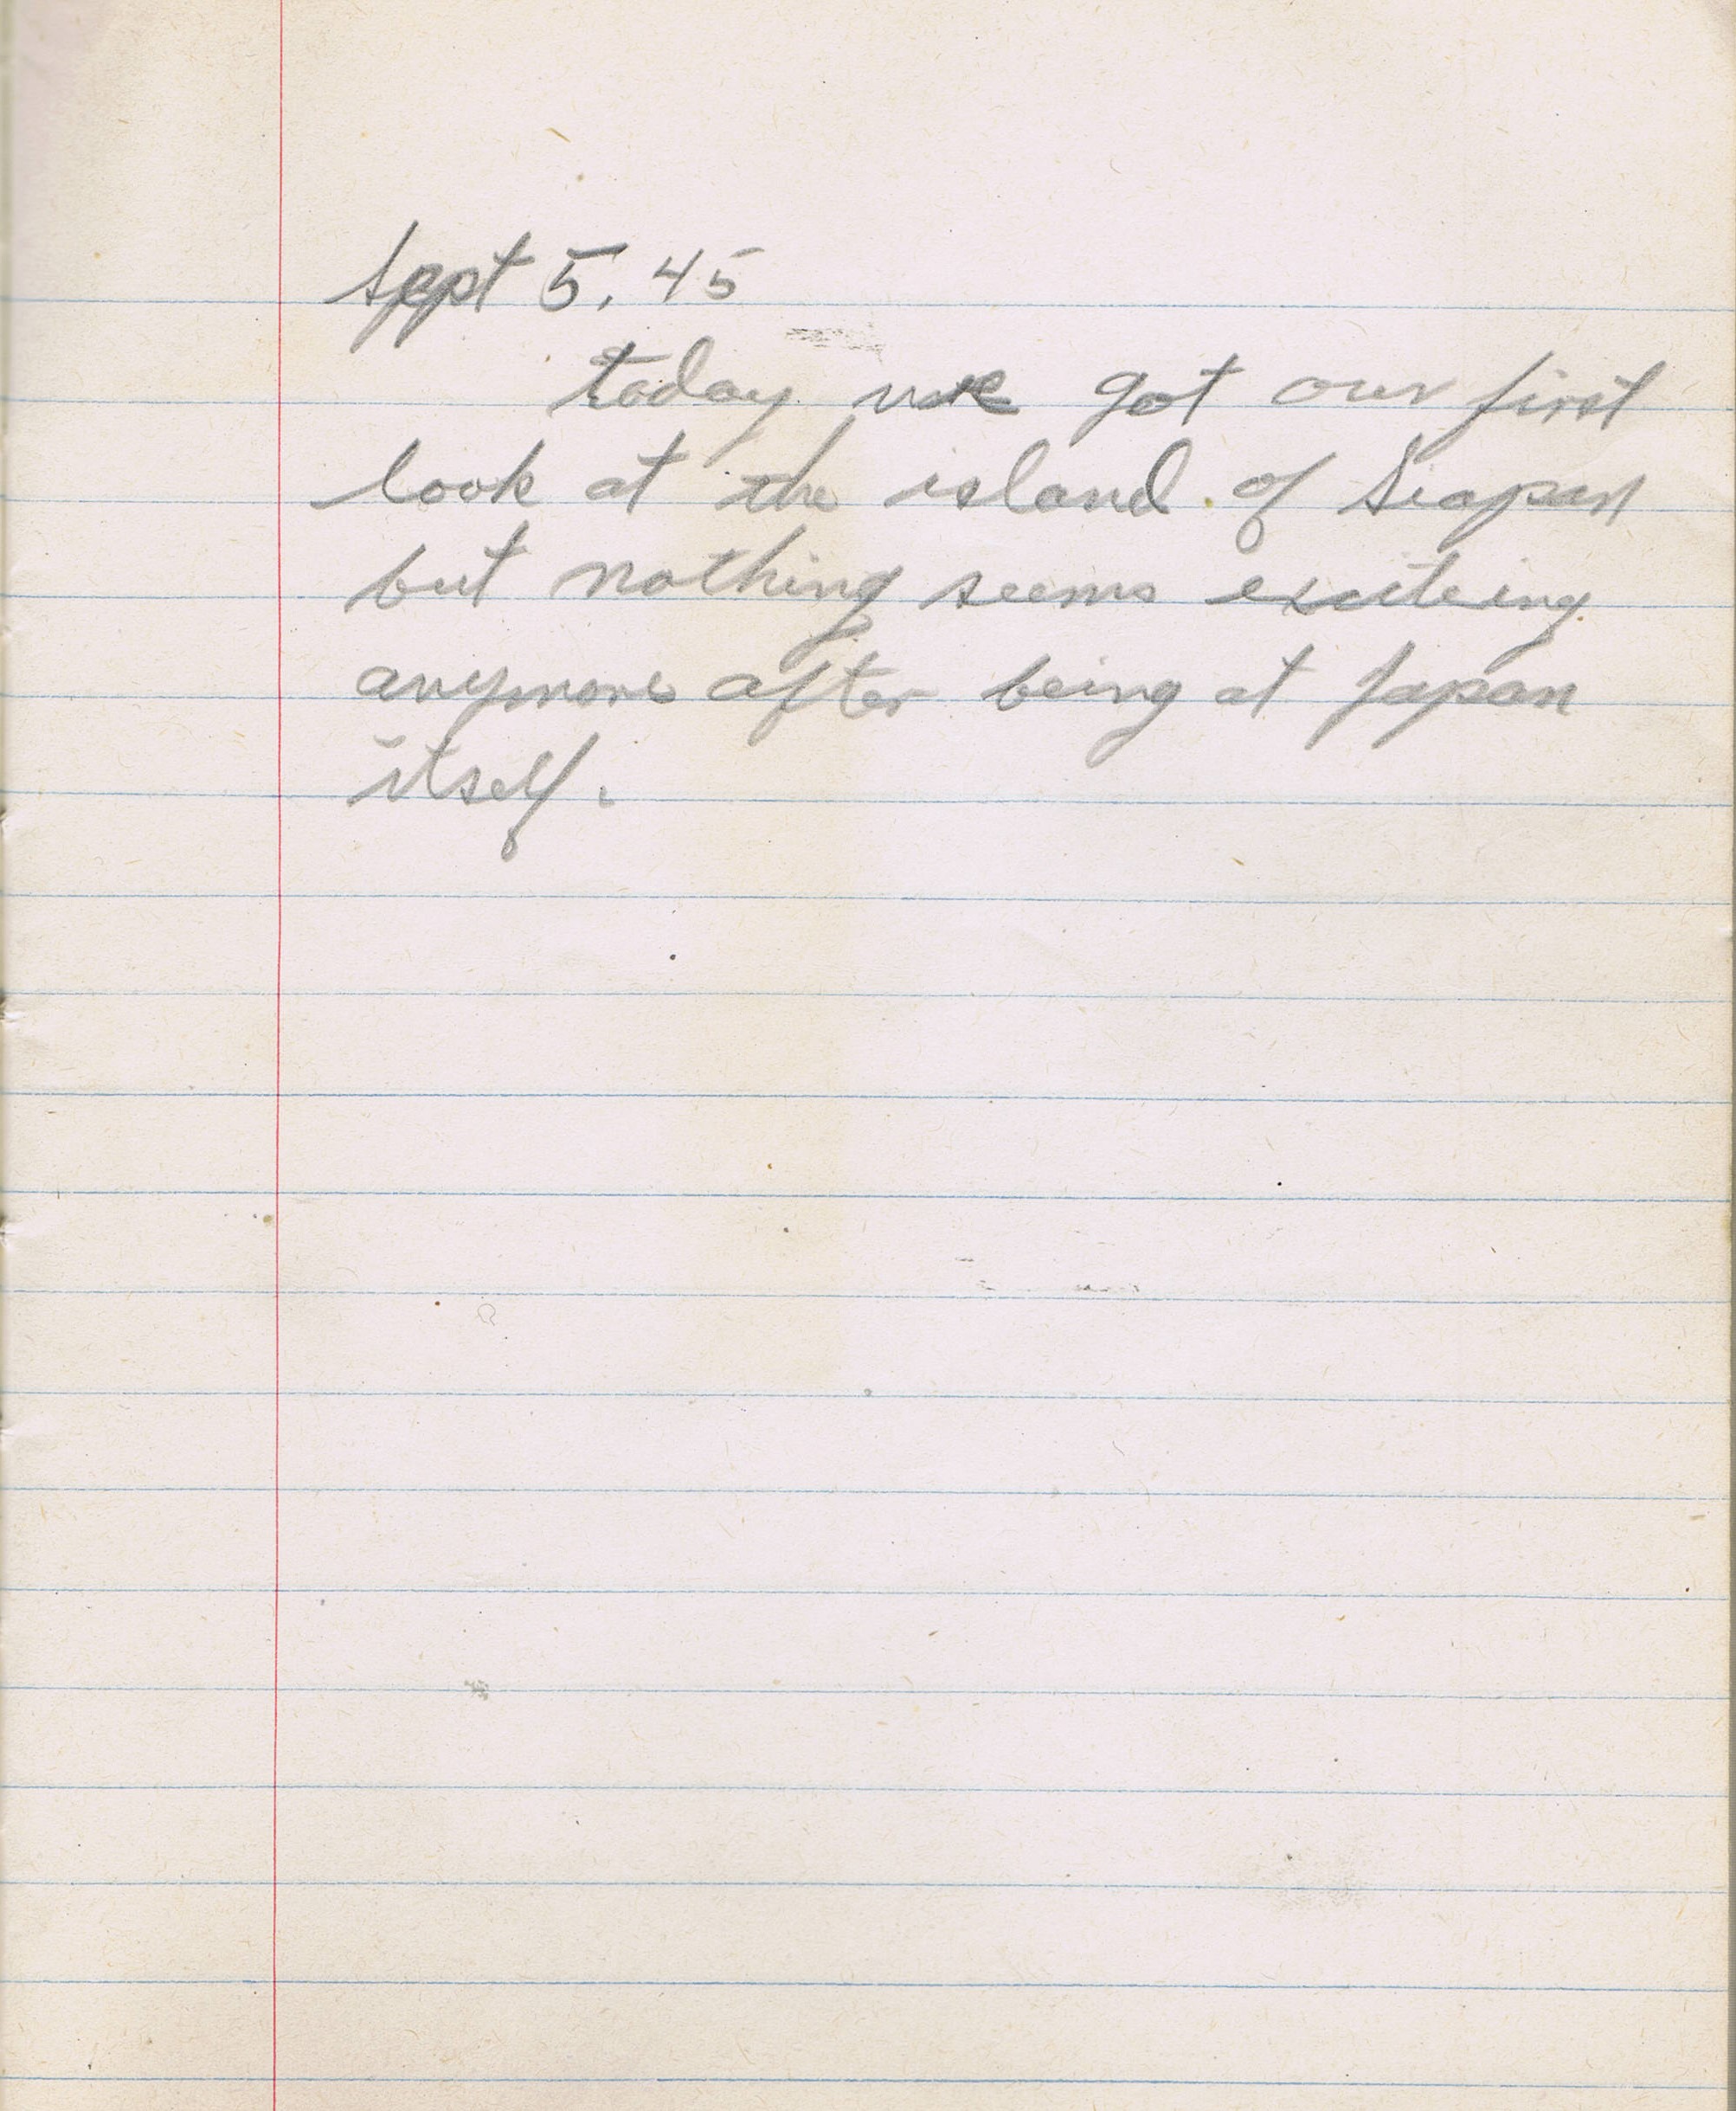 Sept 5, 45
today we got our first
look at the island of Siapan
but nothing seems exciteing
anymore after being at Japan
itself.